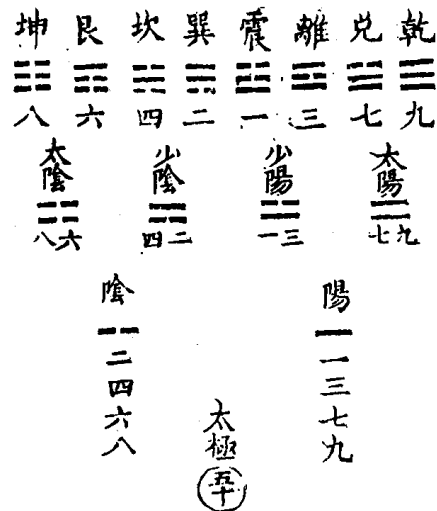 乾 兌 離 震 巽 坎 艮 坤
九 七 三 一 二 四 六 八
太陽 少陽 少陰 太陰
九七 三一 二四 六八
陽
一三七九
陰
二四六八
太極
五十